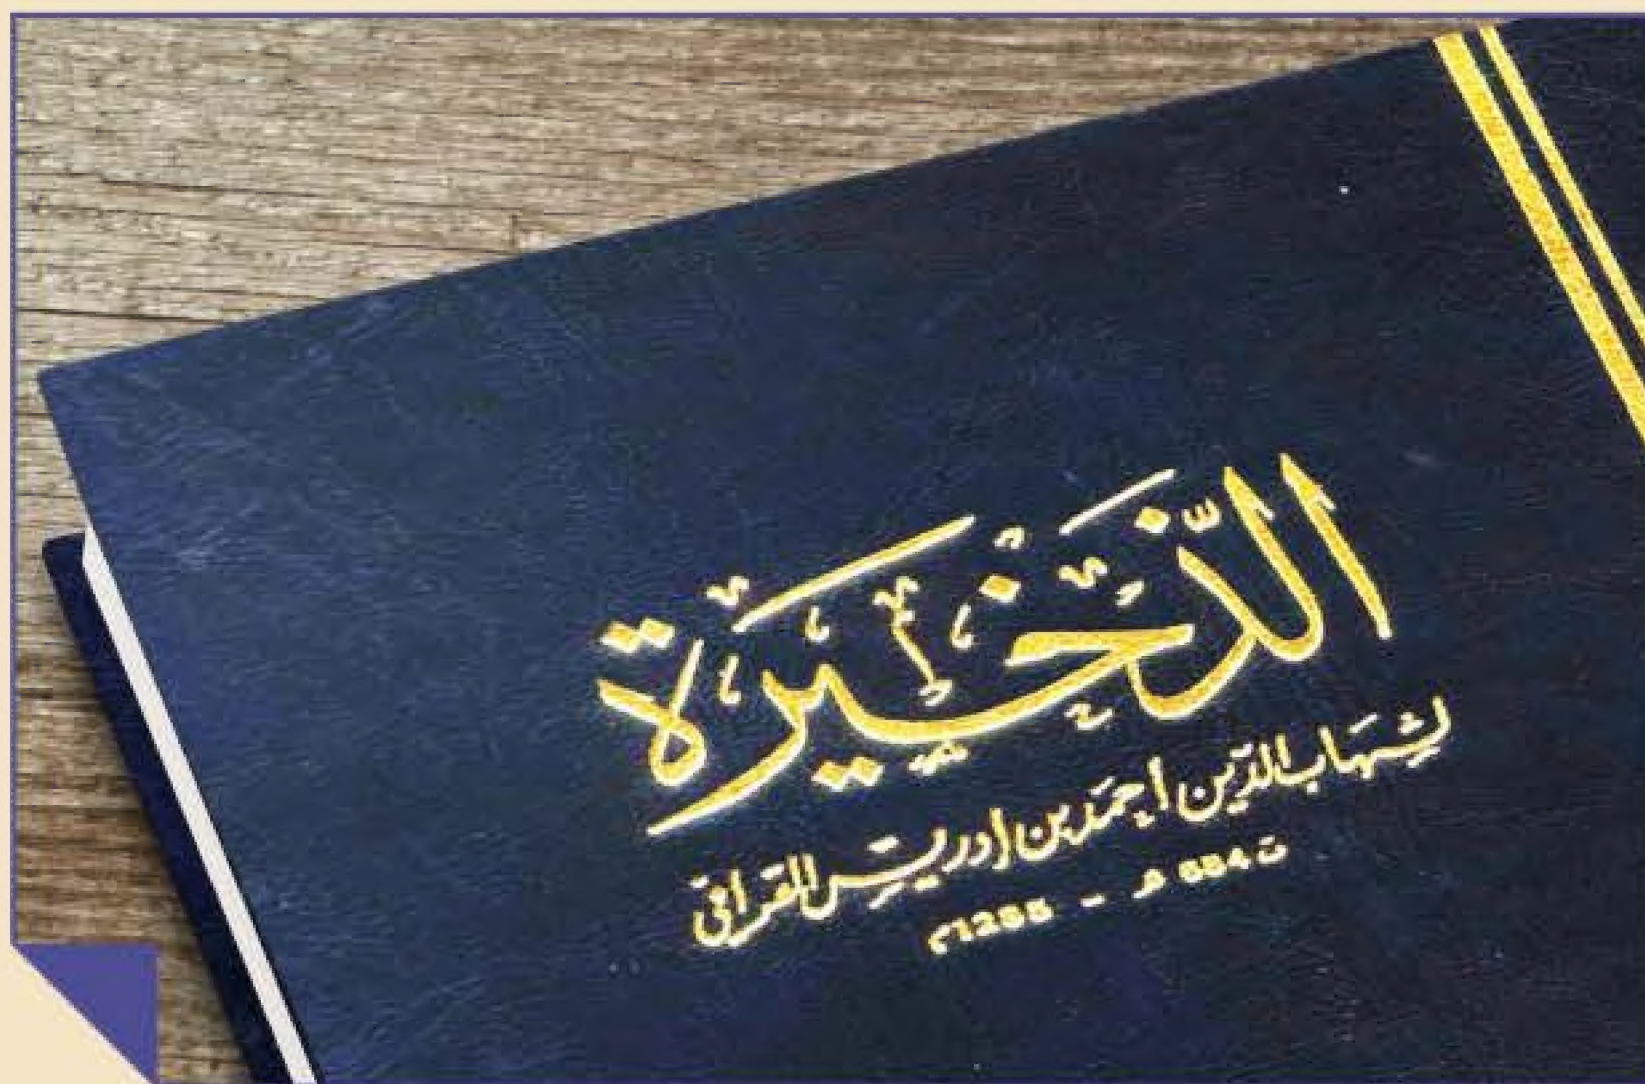 الذّخيرة
لشهاب الدّين أحمَد بن إدريس القرافي
ت 684 هـ - 1285م